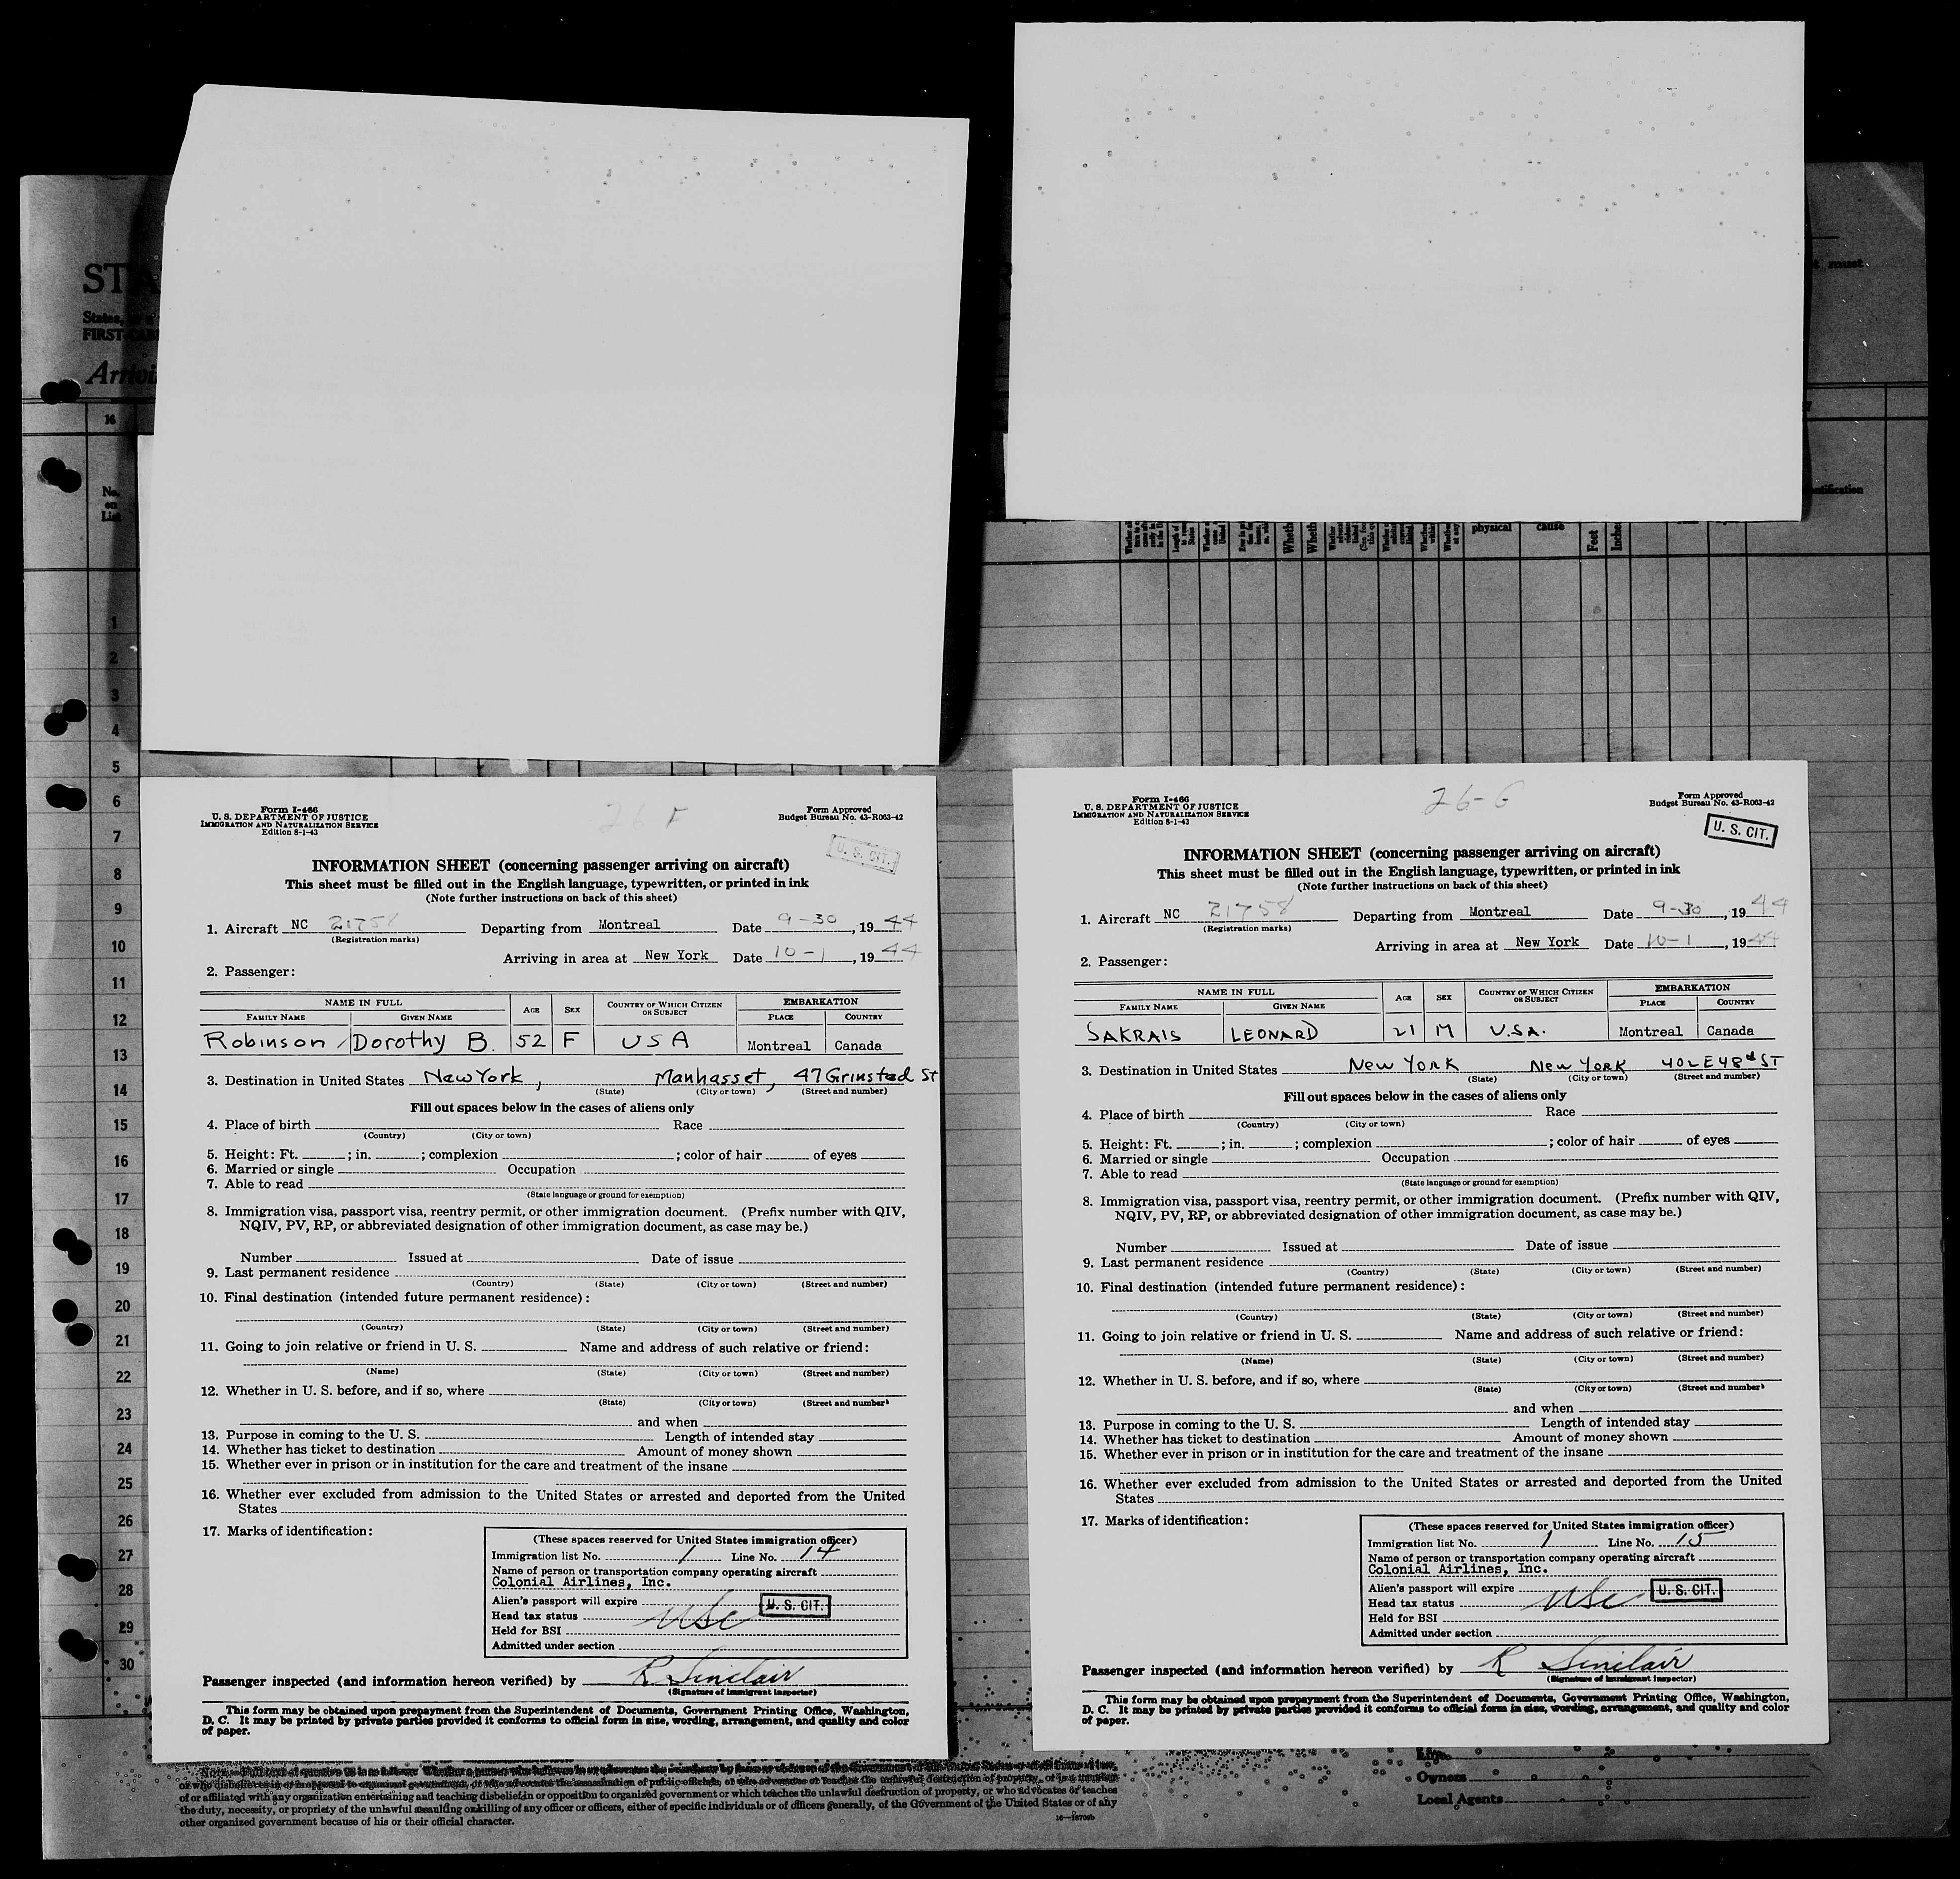 STA
States,
FIRST-CABI
Arrivi
must
16
No.
on
List
physical
cause
Feet
Inches
1
2
3
4
5
6
7
8
9
10
11
12
13
14
15
16
17
18
19
20
21
22
23
24
25
26
27
28
29
30
Form I-466
U. S. DEPARTMENT OF JUSTICE
IMMIGRATION AND NATURALIZATION SERVICE
Edition 8-1-43
26 F
Form Approved
Budget Bureau No. 43-R063-42
U. S. CIT.
INFORMATION SHEET (concerning passenger arriving on aircraft)
This sheet must be filled out in the English language, typewritten, or printed in ink
(Note further instructions on back of this sheet)
1. Aircraft NC 21758 Departing from Montreal Date 9-30, 1944
(Registration marks)
Arriving in area at New York Date 10-1, 1944
2. Passenger:
NAME IN FULL AGE SEX COUNTRY OF WHICH CITIZEN OR SUBJECT EMBARKATION
FAMILY NAME GIVEN NAME PLACE COUNTRY
Robinson Dorothy B. 52 F USA Montreal Canada
3. Destination in United States New York, Manhasset, 47 Grinsted St
(State) (City or town) (Street and number)
Fill out spaces below in the cases of aliens only
4. Place of birth Race
(Country) (City or town)
5. Height: Ft. ; in. ; complexion ; color of hair of eyes
6. Married or single Occupation
7. Able to read
(State language or ground for exemption)
8. Immigration visa, passport visa, reentry permit, or other immigration document. (Prefix number with QIV,
NQIV, PV, RP, or abbreviated designation of other immigration document, as case may be.)
Number Issued at Date of issue
9. Last permanent residence
(Country) (State) (City or town) (Street and number)
10. Final destination (intended future permanent residence):
(Country) (State) (City or town) (Street and number)
11. Going to join relative or friend in U. S. Name and address of such relative or friend:
(Name) (State) (City or town) (Street and number)
12. Whether in U. S. before, and if so, where
(State) (City or town) (Street and number)
and when
13. Purpose in coming to the U. S. Length of intended stay
14. Whether has ticket to destination Amount of money shown
15. Whether ever in prison or in institution for the care and treatment of the insane
16. Whether ever excluded from admission to the United States or arrested and deported from the United
States
17. Marks of identification:
(These spaces reserved for United States immigration officer)
Immigration list No. 1 Line No. 14
Name of person or transportation company operating aircraft
Colonial Airlines, Inc.
Alien's passport will expire U. S. CIT.
Head tax status USC
Held for BSI
Admitted under section
Passenger inspected (and information hereon verified) by R Sinclair
(Signature of immigrant inspector)
This form may be obtained upon prepayment from the Superintendent of Documents, Government Printing Office, Washington,
D. C. It may be printed by private parties provided it conforms to official form in size, wording, arrangement, and quality and color
of paper.
Form I-466
U. S. DEPARTMENT OF JUSTICE
IMMIGRATION AND NATURALIZATION SERVICE
Edition 8-1-43
26-G
Form Approved
Budget Bureau No. 43-R063-42
U. S. CIT.
INFORMATION SHEET (concerning passenger arriving on aircraft)
This sheet must be filled out in the English language, typewritten, or printed in ink
(Note further instructions on back of this sheet)
1. Aircraft NC 21758 Departing from Montreal Date 9-30, 1944
(Registration marks)
Arriving in area at New York Date 10-1, 1944
2. Passenger:
NAME IN FULL AGE SEX COUNTRY OF WHICH CITIZEN OR SUBJECT EMBARKATION
FAMILY NAME GIVEN NAME PLACE COUNTRY
SAKRAIS LEONARD 21 M U.S.A. Montreal Canada
3. Destination in United States New York New York 402 E 48 ST
(State) (City or town) (Street and number)
Fill out spaces below in the cases of aliens only
4. Place of birth Race
(Country) (City or town)
5. Height: Ft. ; in. ; complexion ; color of hair of eyes
6. Married or single Occupation
7. Able to read
(State language or ground for exemption)
8. Immigration visa, passport visa, reentry permit, or other immigration document. (Prefix number with QIV,
NQIV, PV, RP, or abbreviated designation of other immigration document, as case may be.)
Number Issued at Date of issue
9. Last permanent residence
(Country) (State) (City or town) (Street and number)
10. Final destination (intended future permanent residence):
(Country) (State) (City or town) (Street and number)
11. Going to join relative or friend in U. S. Name and address of such relative or friend:
(Name) (State) (City or town) (Street and number)
12. Whether in U. S. before, and if so, where
(State) (City or town) (Street and number)
and when
13. Purpose in coming to the U. S. Length of intended stay
14. Whether has ticket to destination Amount of money shown
15. Whether ever in prison or in institution for the care and treatment of the insane
16. Whether ever excluded from admission to the United States or arrested and deported from the United
States
17. Marks of identification:
(These spaces reserved for United States immigration officer)
Immigration list No. 1 Line No. 15
Name of person or transportation company operating aircraft
Colonial Airlines, Inc.
Alien's passport will expire U. S. CIT.
Head tax status USC
Held for BSI
Admitted under section
Passenger inspected (and information hereon verified) by R Sinclair
(Signature of immigrant inspector)
This form may be obtained upon prepayment from the Superintendent of Documents, Government Printing Office, Washington,
D. C. It may be printed by private parties provided it conforms to official form in size, wording, arrangement, and quality and color
of paper.
of or affiliated with any organization entertaining and teaching disbelief in or opposition to organized government or which teaches the unlawful destruction of property, or who advocates or teaches
the duty, necessity, or propriety of the unlawful assaulting or killing of any officer or officers, either of specific individuals or of officers generally, of the Government of the United States or of any
other organized government because of his or their official character.
Owners
Local Agents